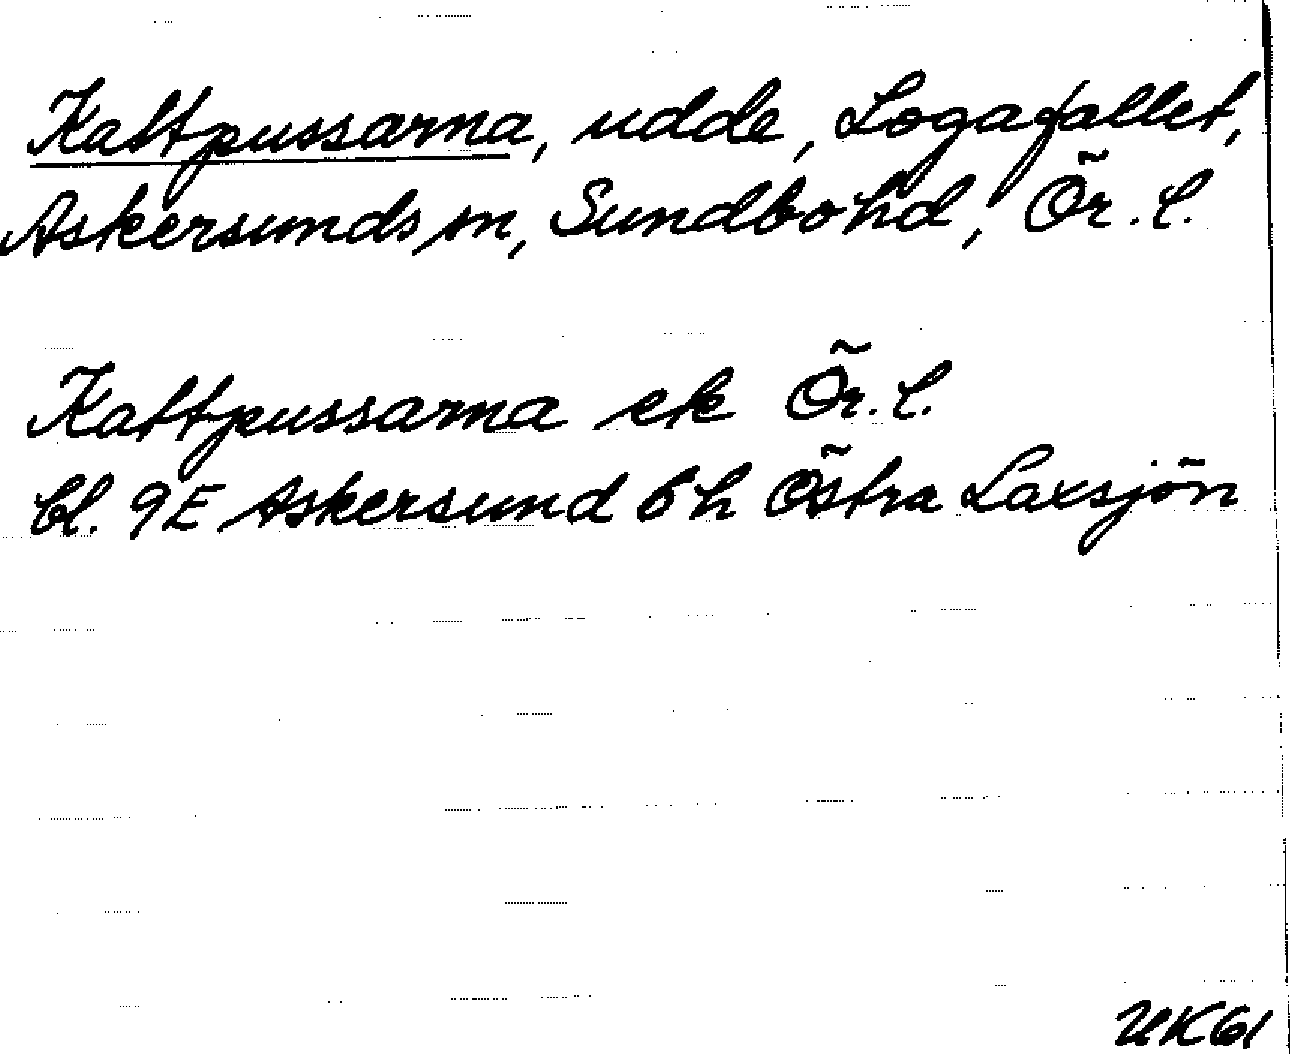 Kattpussarna, udde, Logafallet,
Askersunds sn, Sundbohd, Ör. l.
Kattpussarna ek Ör. l.
bl. 9E Askersund 6h Östra Laxsjön
UK61